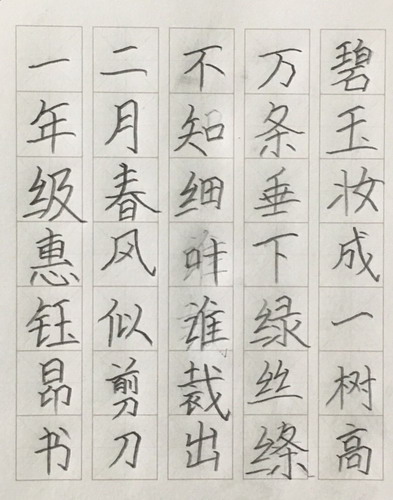 碧玉妆成一树高
万条垂下绿丝绦
不知细叶谁裁出
二月春风似剪刀
一年级惠钰昂书